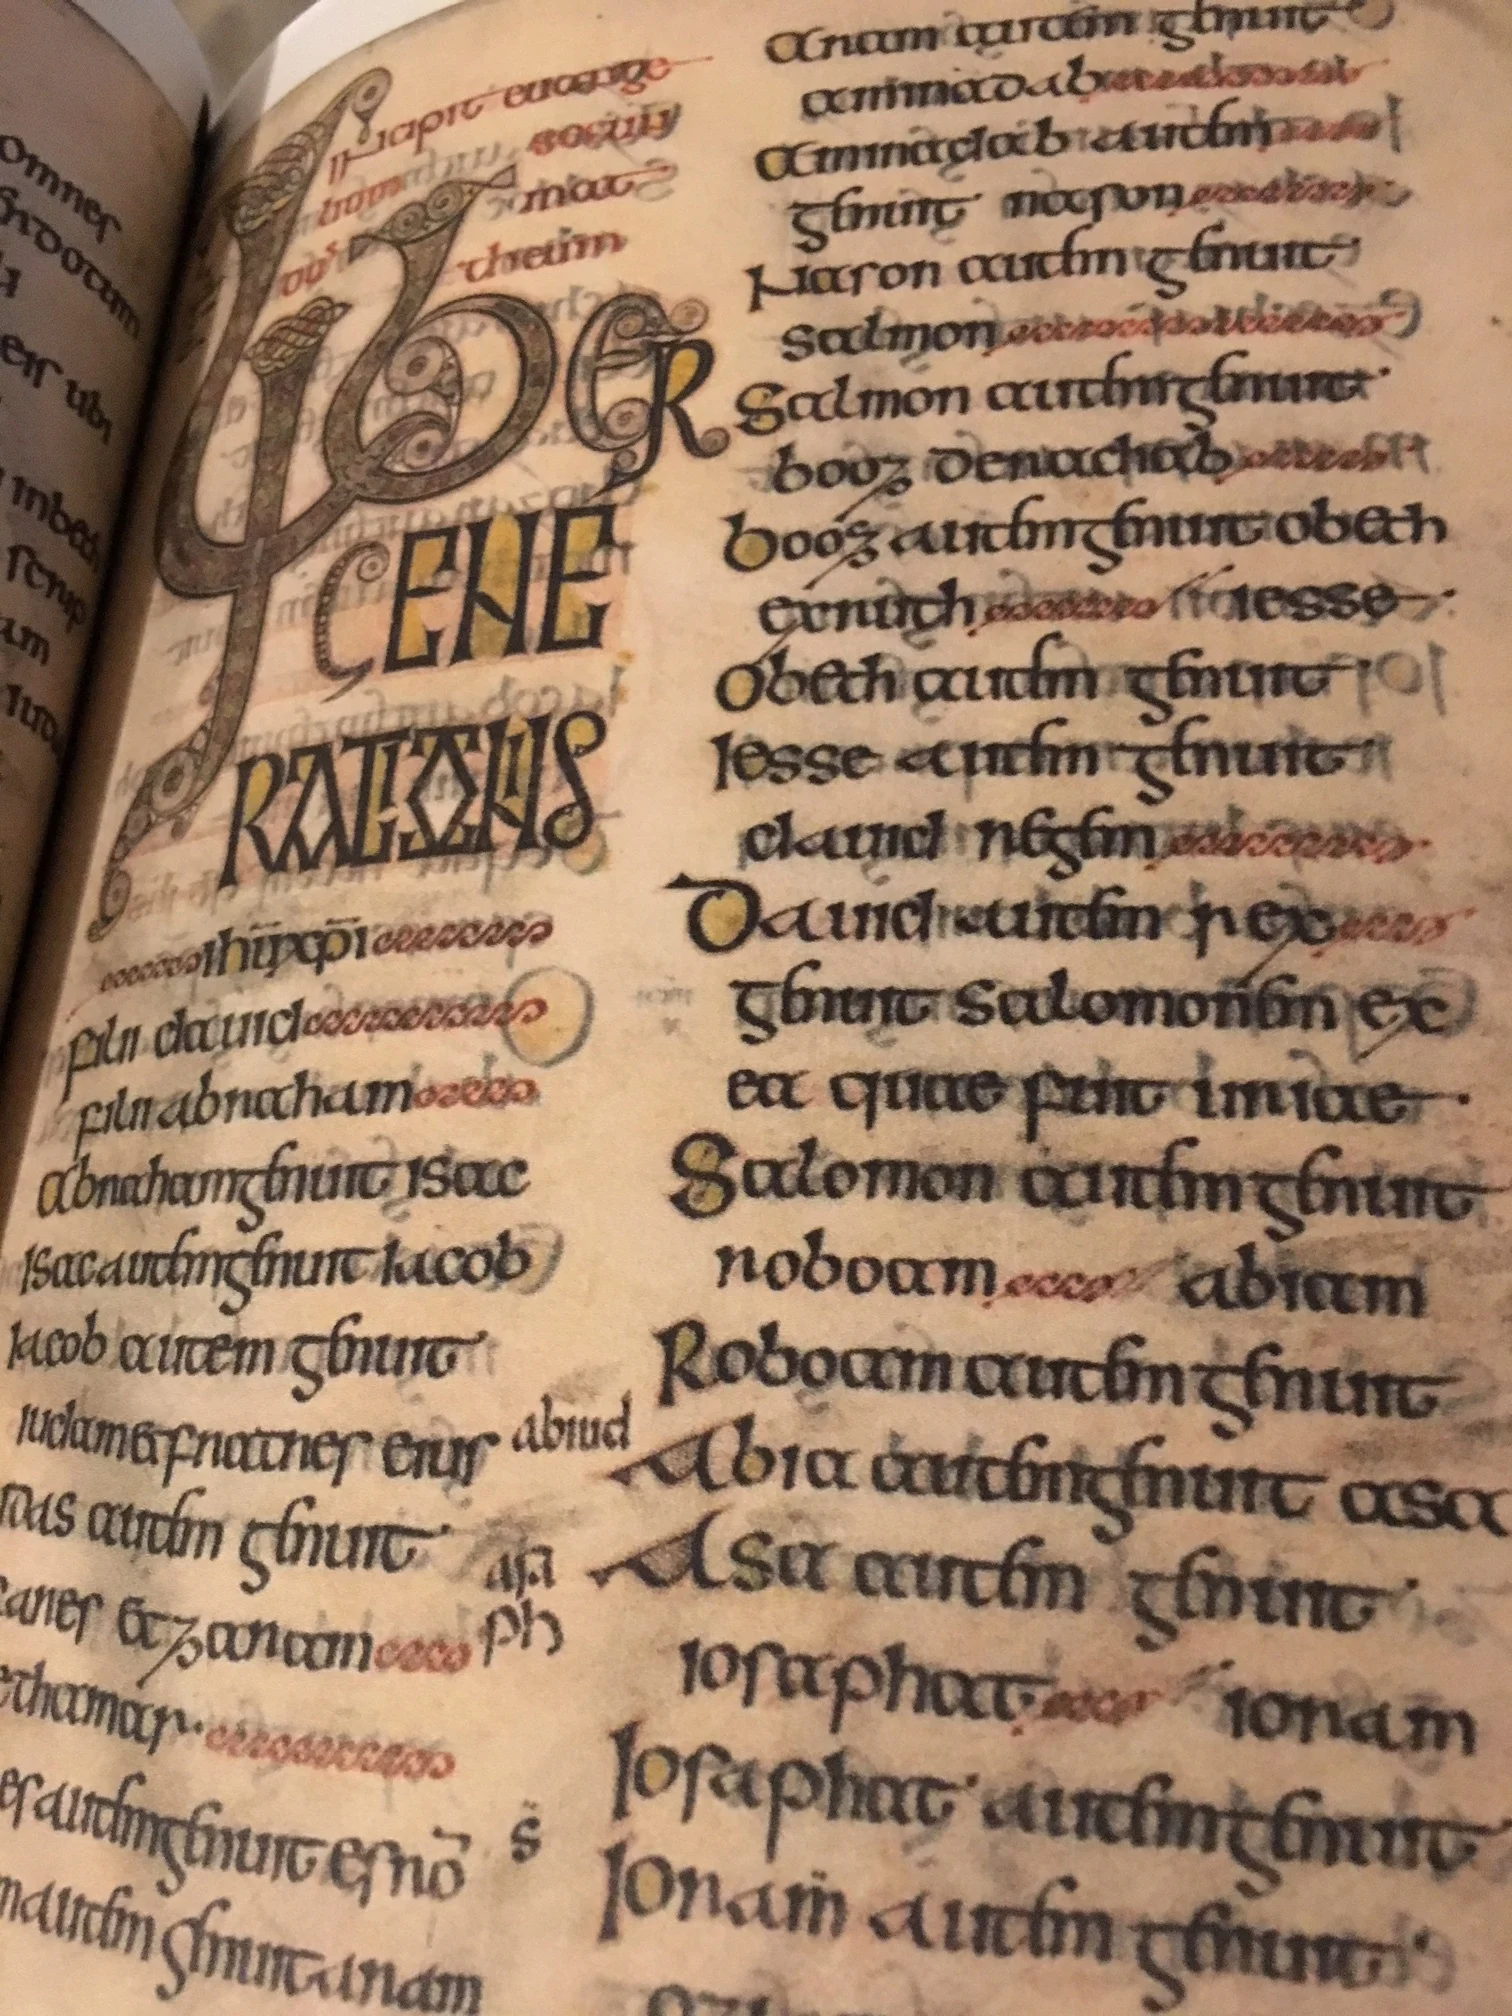 Incipit euange
lium secun
dum mat
theum
Liber
GENE
RATIONIS
ihu xpi
filii dauid
filii abracham
abracham genuit isac
Isac autem genuit iacob
Iacob autem genuit
iudam et fratres eius
das autem genuit
fares et zaram
ethamar
es autem genuit esrō
m autem genuit aram
abiud
asa
ph
s
Aram autem genuit
aminadab
Aminadab autem
genuit nason
Nason autem genuit
salmon
Salmon autem genuit
booz de rachab
booz autem genuit obeth
ex ruth iesse
Obeth autem genuit
Iesse autem genuit
dauid regem
Dauid autem rex
genuit salomonem ex
ea quae fuit uriae
Salomon autem genuit
roboam abiam
Roboam autem genuit
Abia autem genuit asa
Asa autem genuit
iosaphat ioram
Iosaphat autem genuit
Ioram autem genuit
omnes
ubi